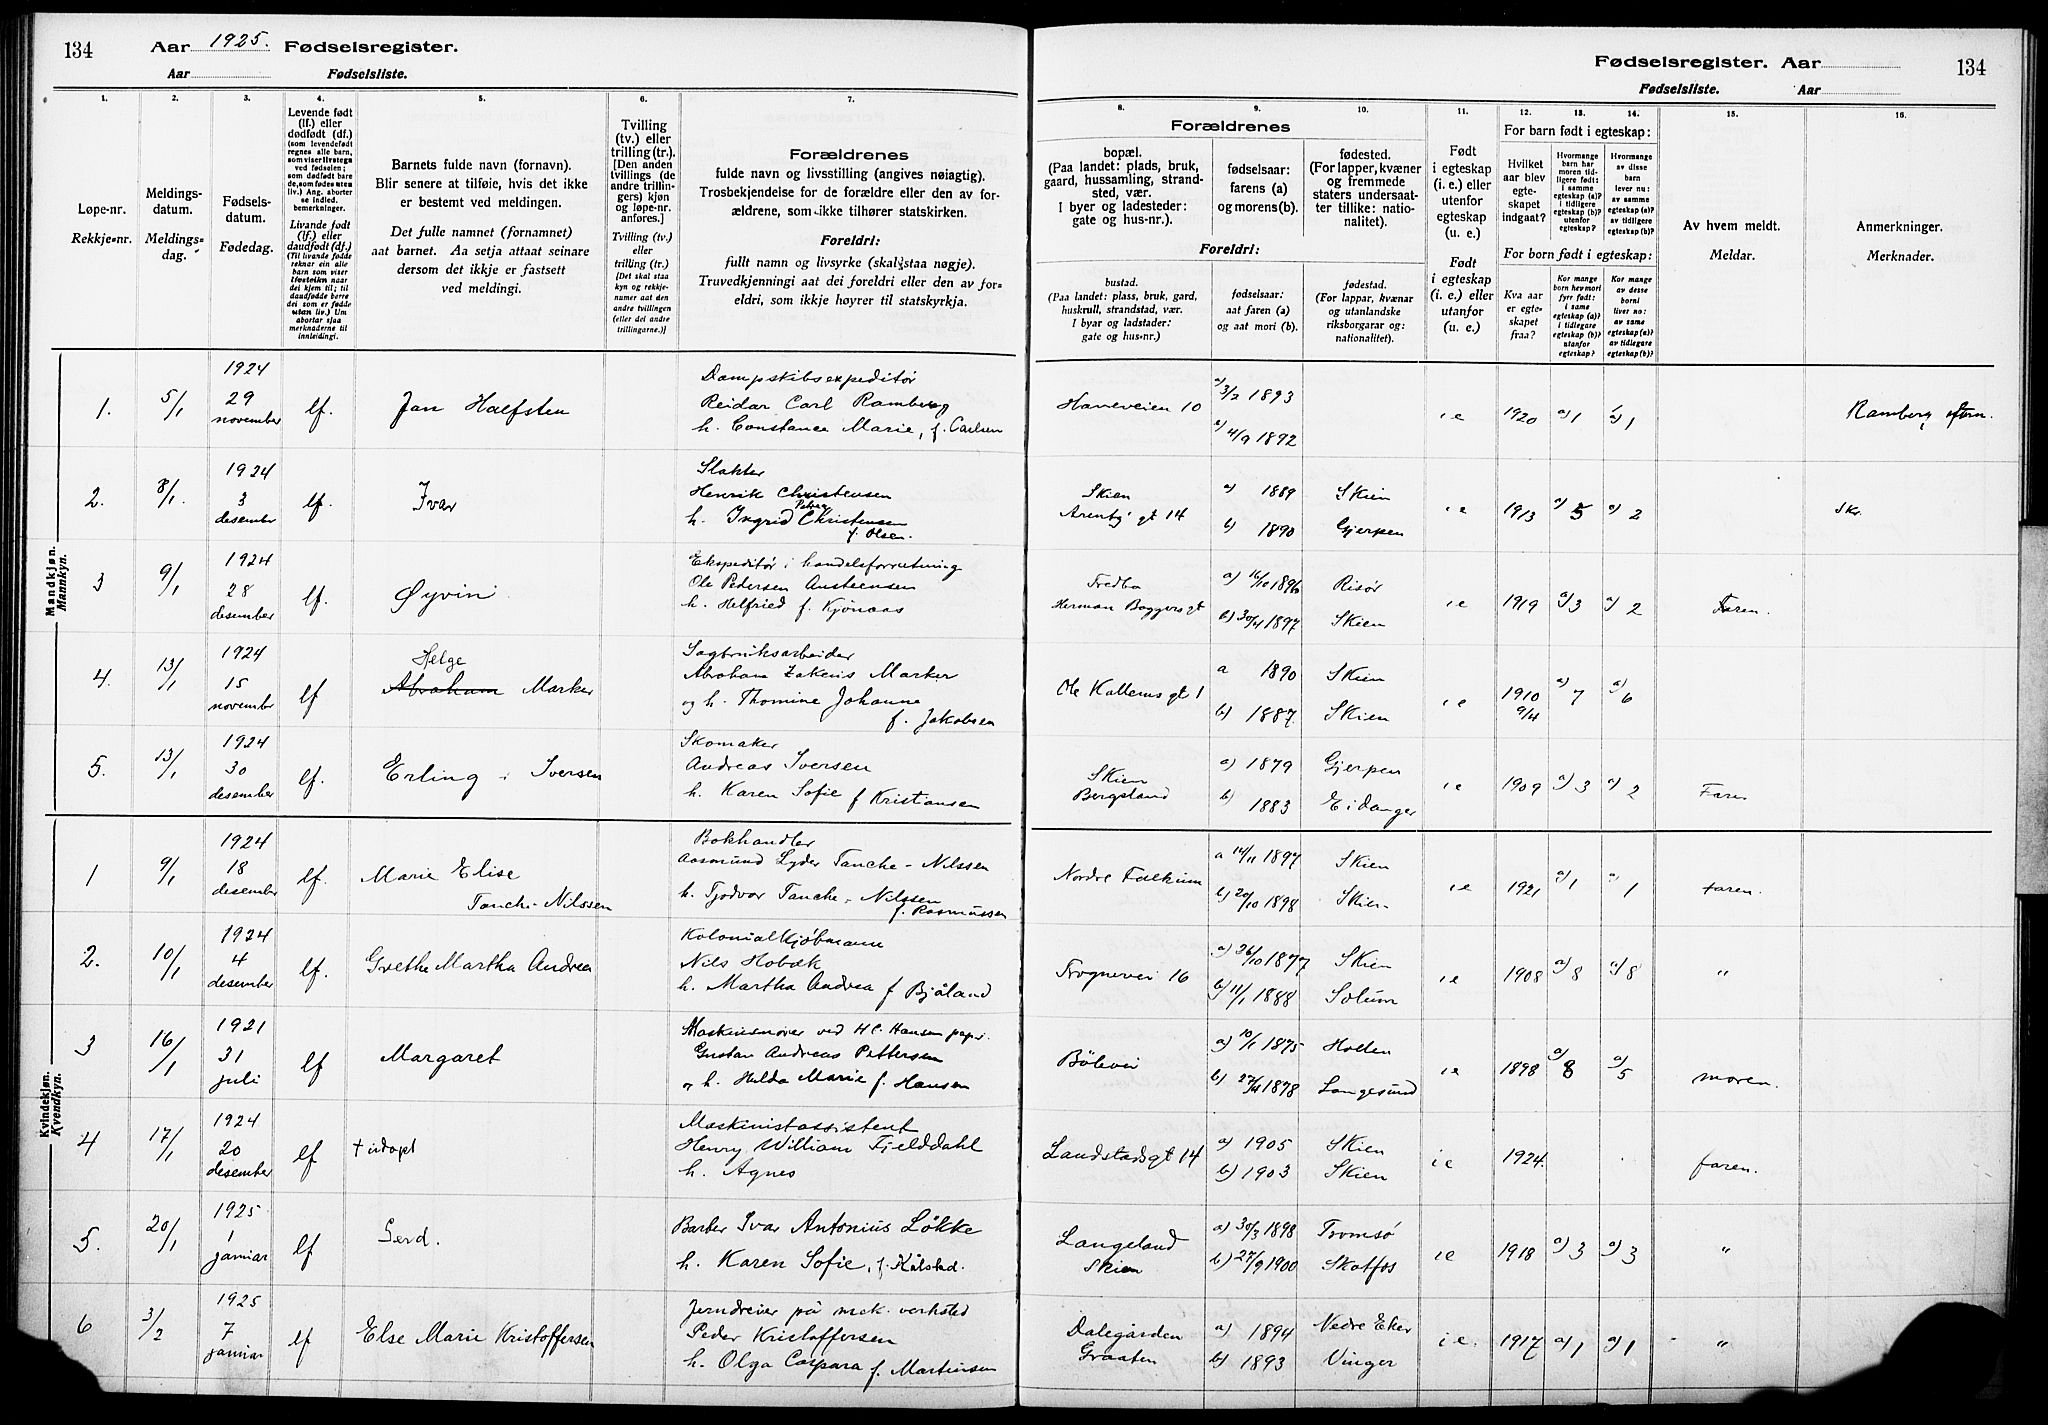 134 Aar 1925. Fødselsregister.
Aar Fødselsliste.
Fødselsregister. Aar 134
Fødselsliste. Aar
1.
Løpe-nr.
Rekkje-nr.
2.
Meldings-
datum.
Meldings-
dag.
3.
Fødsels-
datum.
Fødedag.
4.
Levende født
(lf.) eller
dødfødt (df.)
(som levendefødt
regnes alle barn,
som viser livstegn
ved fødselen;
som dødfødt bar-
de, som fødes uten
liv.) Ang. aborter
se indled.
bemerkninger.
Livande født
(lf.) eller
daudfødt (df.)
(Til livande fødde
reknar ein alle
barn som viser
livsteikn naar
dei kjem til; til
daudfødde berre
dei som er fødde
utan liv.) Um
abortar sjaa
merknaderne til
innleidingi.
5.
Barnets fulde navn (fornavn).
Blir senere at tilføie, hvis det ikke
er bestemt ved meldingen.
Det fulle namnet (fornamnet)
aat barnet. Aa setja attaat seinare
dersom det ikkje er fastsett
ved meldingi.
6.
Tvilling
(tv.) eller
trilling (tr.).
[Den anden
tvillings (de
andre trillin-
gers) kjøn
og løpe-nr.
anføres.]
Tvilling (tv.)
eller
trilling (tr.)
[Det skal staa
kyn og rekkje-
numer aat den
andre tvillingen
(eller dei andre
trillingarne.)]
7.
Forældrenes
fulde navn og livsstilling (angives nøiagtig).
Trosbekjendelse for de forældre eller den av for-
ældrene, som ikke tilhører statskirken.
Foreldri:
fullt namn og livsyrke (skal staa nøgje).
Truvedkjenningi aat dei foreldri eller den av for-
eldri, som ikkje høyrer til statskyrkja.
8.
Forældrenes
bopæl.
(Paa landet: plads, bruk,
gaard, hussamling, strand-
sted, vær.
I byer og ladesteder:
gate og hus-nr.).
Foreldri:
bustad.
(Paa landet: plass, bruk, gard,
huskrull, strandstad, vær.
I byar og ladstader:
gate og hus-nr.)
9.
fødselsaar:
farens (a)
og morens (b).
fødselsaar:
aat faren (a)
og aat mori (b).
10.
fødested.
(For lapper, kvæner
og fremmede
staters undersaat-
ter tillike: natio-
nalitet).
fødestad.
(For lappar, kvænar
og utanlandske
riksborgarar og:
nationalitet).
11.
Født
i egteskap
(i. e.) eller
utenfor
egteskap
(u. e.)
Født
i egteskap
(i. e.) eller
utanfor
(u. e.)
12. 13. 14.
For barn født i egteskap:
Hvilket
aar blev
egte-
skapet
indgaat?
Hvormange
barn har
moren tid-
ligere født:
i samme
egteskap (a)?
i tidligere
egteskap (b)?
utenfor
egteskap?
Hvormange
av disse
barn
lever nu:
av samme
egteskap (a)?
av tidligere
egteskap (b)?
For born født i egteskap:
Kva aar
er egte-
skapet
fraa?
Kor mange
born hev mori
fyrr født:
i same
egteskap (a)?
i tidlegare
egteskap (b)?
utanfor
egteskap?
Kor mange
av desse
borni
liver no:
av same
egteskap (a)?
av tidlegare
egteskap (b)?
15.
Av hvem meldt.
Meldar.
16.
Anmerkninger.
Merknader.
Mandkjøn.
Mannkyn.
1. 5/1 1924 29 november lf. Jan Halfsten
Dampskibsexpeditør
Reidar Carl Ramberg
h. Constance Marie, f. Carlsen
Haneveien 10 a) 3/2 1893 b) 4/9 1892 i e 1920 a) 1 a) 1 Ramberg eftern.
2. 8/1. 1924 3 desember lf. Ivar
Slakter
Henrik Christensen
h. Ingrid Petrea Christensen
f. Olsen.
Skien
gt 14 a) 1889 Skien b) 1890 Gjerpen i e 1913 a) 5 a) 2 Skr.
3 9/1 1924 28 desember lf. Øyvin
Ekspeditør i handelsforretning
Ole Pedersen Austensen
h. Helfried f. Kjønaas
Fredbo
Herman Baggers gt a) 16/10 1896 Risør b) 30/4 1897 Skien i e 1919 a) 3 a) 2 Faren.
4. 13/1 1924 15 november lf Helge
Abraham Marker
Sagbruksarbeider
Abraham Zakeus Marker
og h. Thomine Johanne
f. Jakobsen
Ole Kallems gt 1 a 1890 Skien b) 1887. Skien i e 1910 9/4 a) 7 a) 6
5. 13/1 1924 30 desember lf. Erling Iversen
Skomaker
Andreas Iversen
h. Karen Sofie f Kristiansen
Skien
Bergsland a) 1879 Gjerpen b) 1883 Eidanger i e 1909 a) 3 a) 2 Faren
Kvindekjøn.
Kvendkyn.
1 9/1 1924 18 desember lf. Marie Elise
Tanche-Nilssen
Bokhandler
Aasmund Lyder Tanche-Nilssen
h. Tjodvor Tanche-Nilssen
f. Rasmussen
Nordre Falkum a 14/11 1897 Skien b) 20/10 1898 Skien i e 1921 a) 1 a) 1 faren.
2. 10/1 1924 4 desember lf. Grethe Martha Andrea
Kolonialkjøbmann
Nils Hobæk
h. Martha Andrea f Bjåland
Frognervei 16 a) 26/10 1877 Skien b) 11/1 1888 Solum i e 1908 a) 8 a) 8 "
3 16/1 1921 31 juli lf Margaret
Maskinsmører ved H.C. Hansen papir.
Gustav Andreas Pettersen
og h. Hulda Marie f. Hansen
Bølevei a) 10/1 1875 Holden b) 27/4 1878 Langesund i e 1898 a) 8 a) 5 moren.
4 17/1 1924 20 desember lf + udøpt
Maskinistassistent
Henry William Fjelddahl
h. Agnes
Landstadsgt 14 a) 1905 Skien b) 1903 Skien i e 1924. faren.
5. 20/1 1925 1 januar lf Gerd.
Barber Ivar Antonius Løkke
h. Karen Sofie, f. Kålstad.
Langeland
Skien a) 30/3 1898 Tromsø b) 27/9 1900 Skotfos i e 1918 a) 3 a) 3 "
6 3/2 1925 7 januar lf Else Marie Kristoffersen
Jerndreier på mek. verksted
Peder Kristoffersen
h. Olga Caspara f. Martinsen
Dalegården
Graaten a) 1894 Nedre Eker b) 1893 Vinger i e. 1917 a) 1 a) 1 "